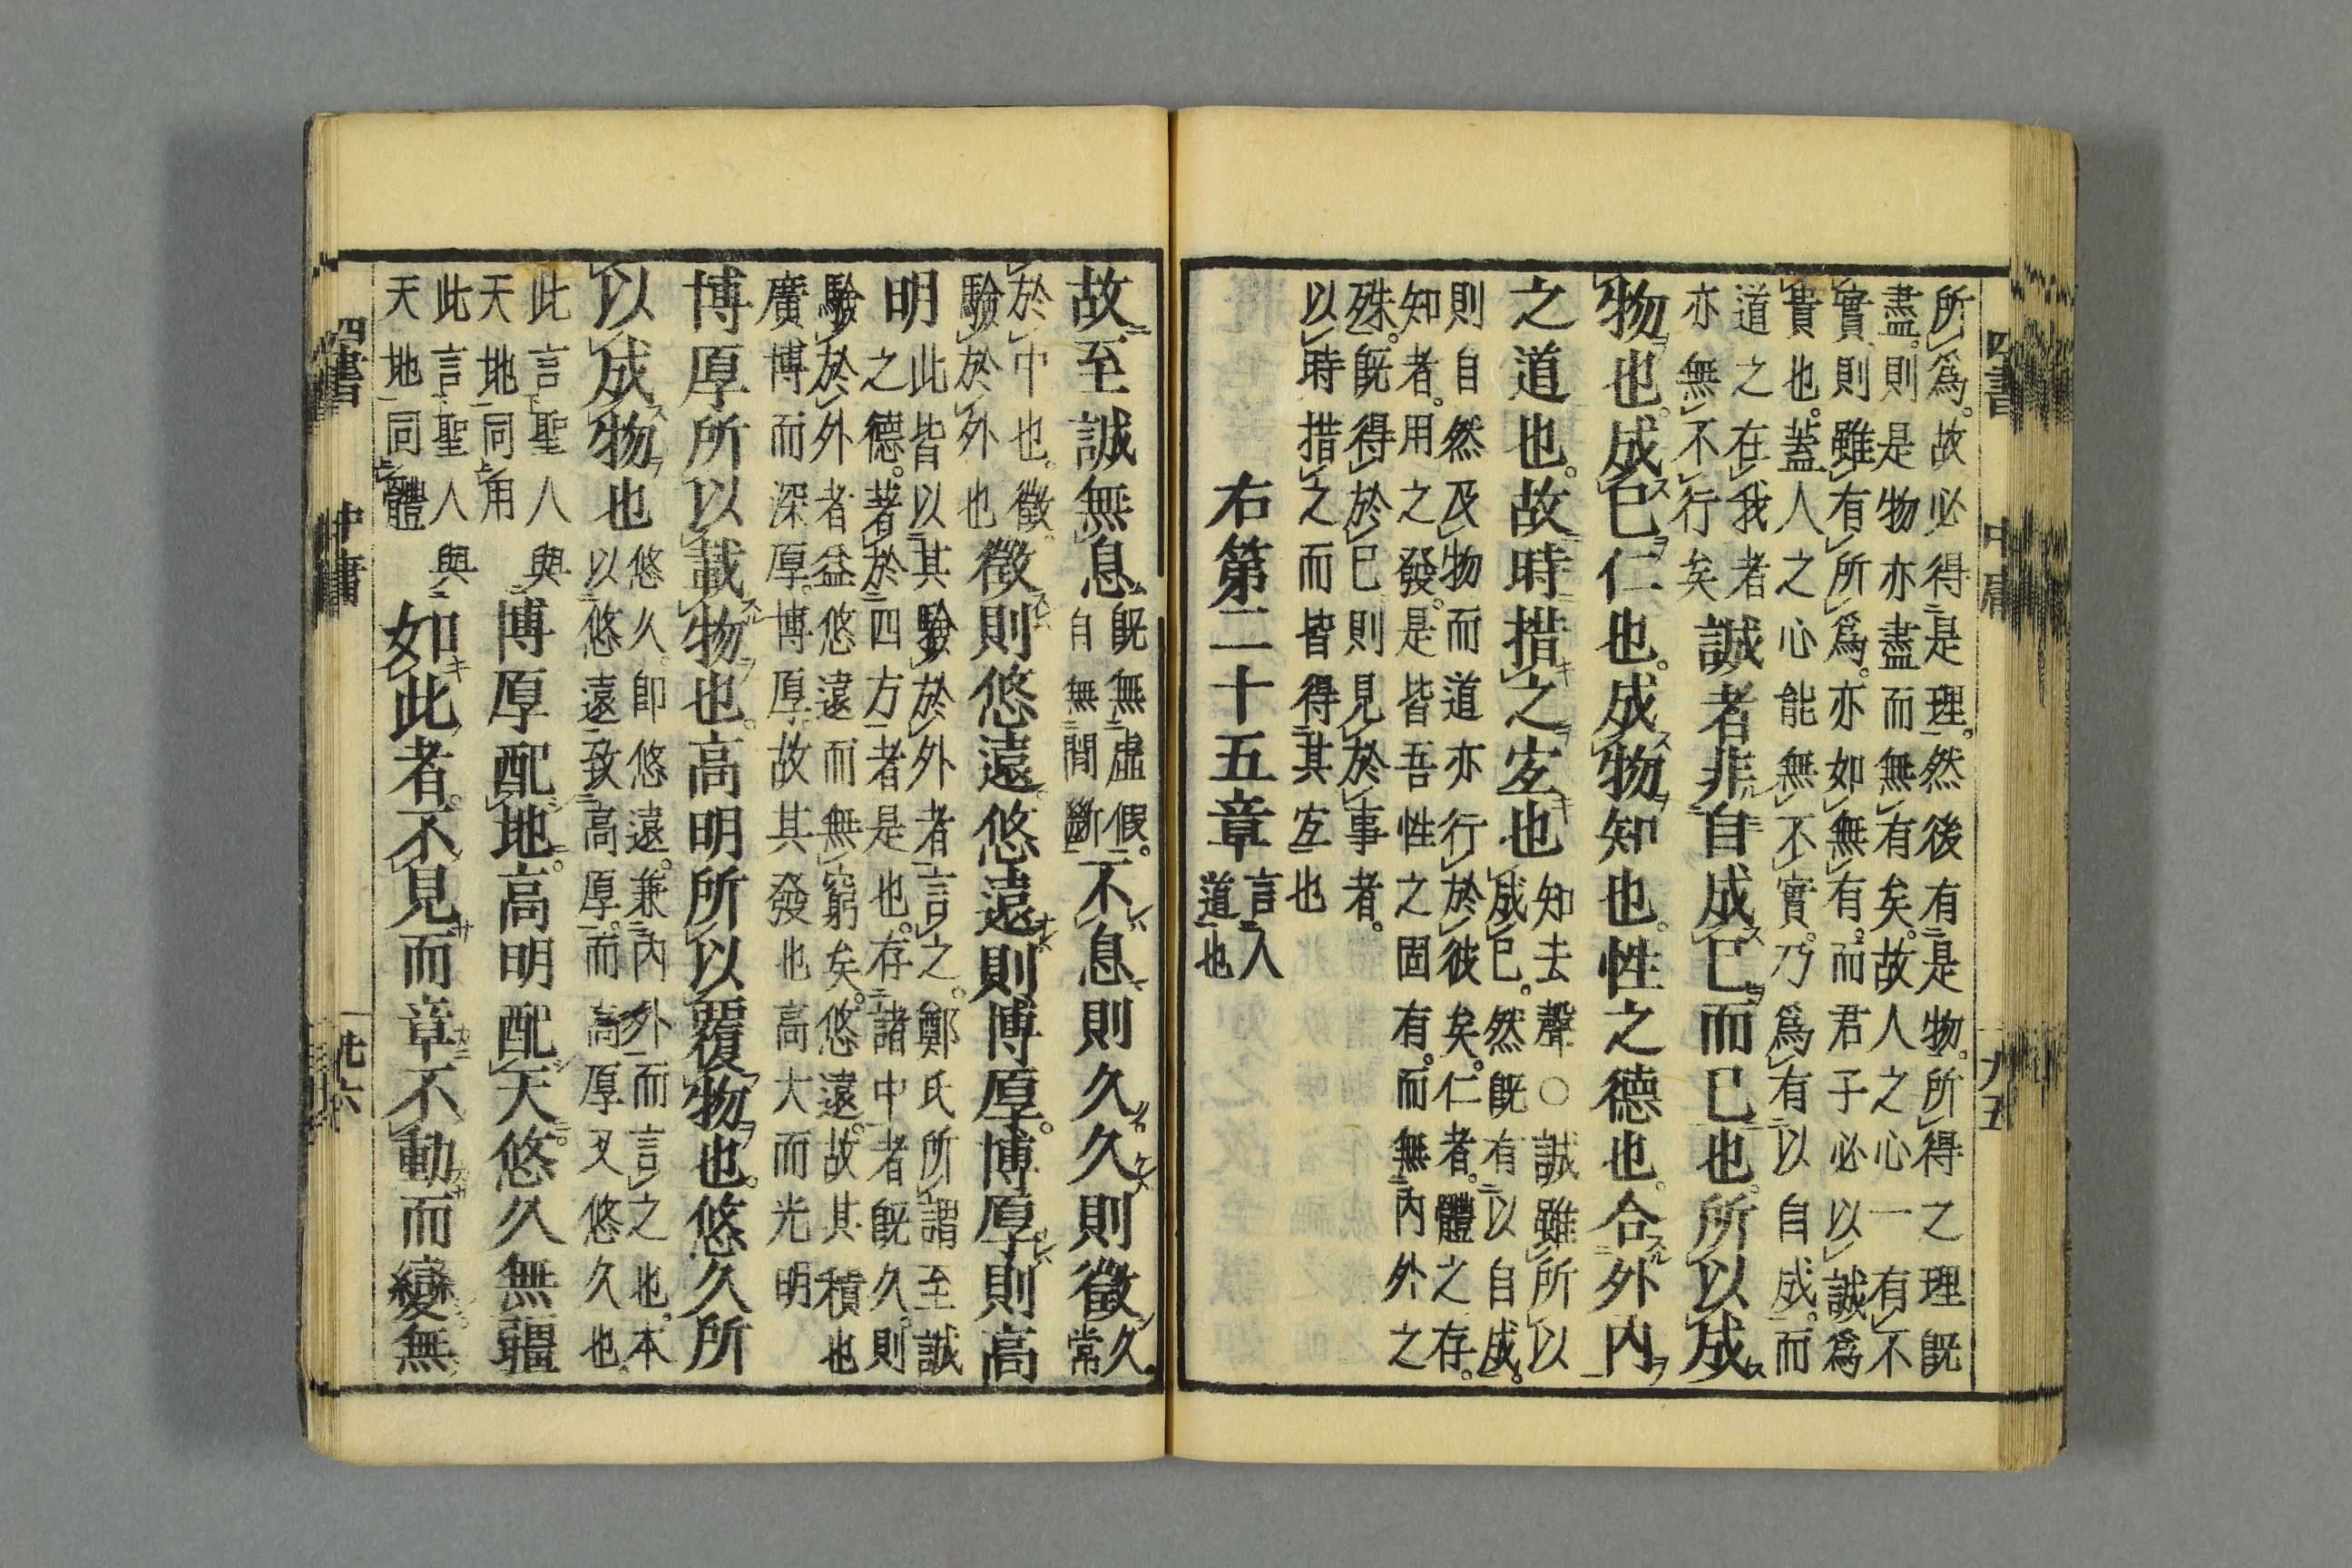 四書 中庸
所爲。故必得是理。然後有是物。所得之理既
盡。則是物亦盡而無有矣。故人之心一有不
實。則雖有所爲。亦如無有。而君子必以誠爲
貴也。蓋人之心能無不實。乃爲有以自成。而
道之在我者
亦無不行矣
誠者非自成已而已也。所以成
物也。成已仁也。成物知也。性之德也。合外内
之道也。故時措之宜也
知去聲○誠雖所以
成已。然既有以自成。
則自然及物而道亦行於彼矣。仁者。體之存。
知者。用之發。是皆吾性之固有。而無内外之
殊。既得於已則見於事者。
以時措之而皆得其宜也
右第二十五章
言人
道也
故至誠無息
既無虛假。
自無間斷
不息則久久則徵
久
常
於中也。徵。
驗於外也
徵則悠遠。悠遠則博厚。博厚則高
明
此皆以其驗於外者言之。鄭氏所謂至誠
之德。著於四方者是也。存諸中者既久。則
驗於外者益悠遠而無窮矣。悠遠。故其積也
廣博而深厚。博厚。故其發也高大而光明
博厚所以載物也。高明所以覆物也。悠久所
以成物也
悠久。即悠遠。兼内外而言之也。本
以悠遠致高厚。而高厚又悠久也。
此言聖人與
天地同用
博厚配地。高明配天。悠久無疆
此言聖人與
天地同體
如此者。不見而章不動而變無
四書 中庸 廿六